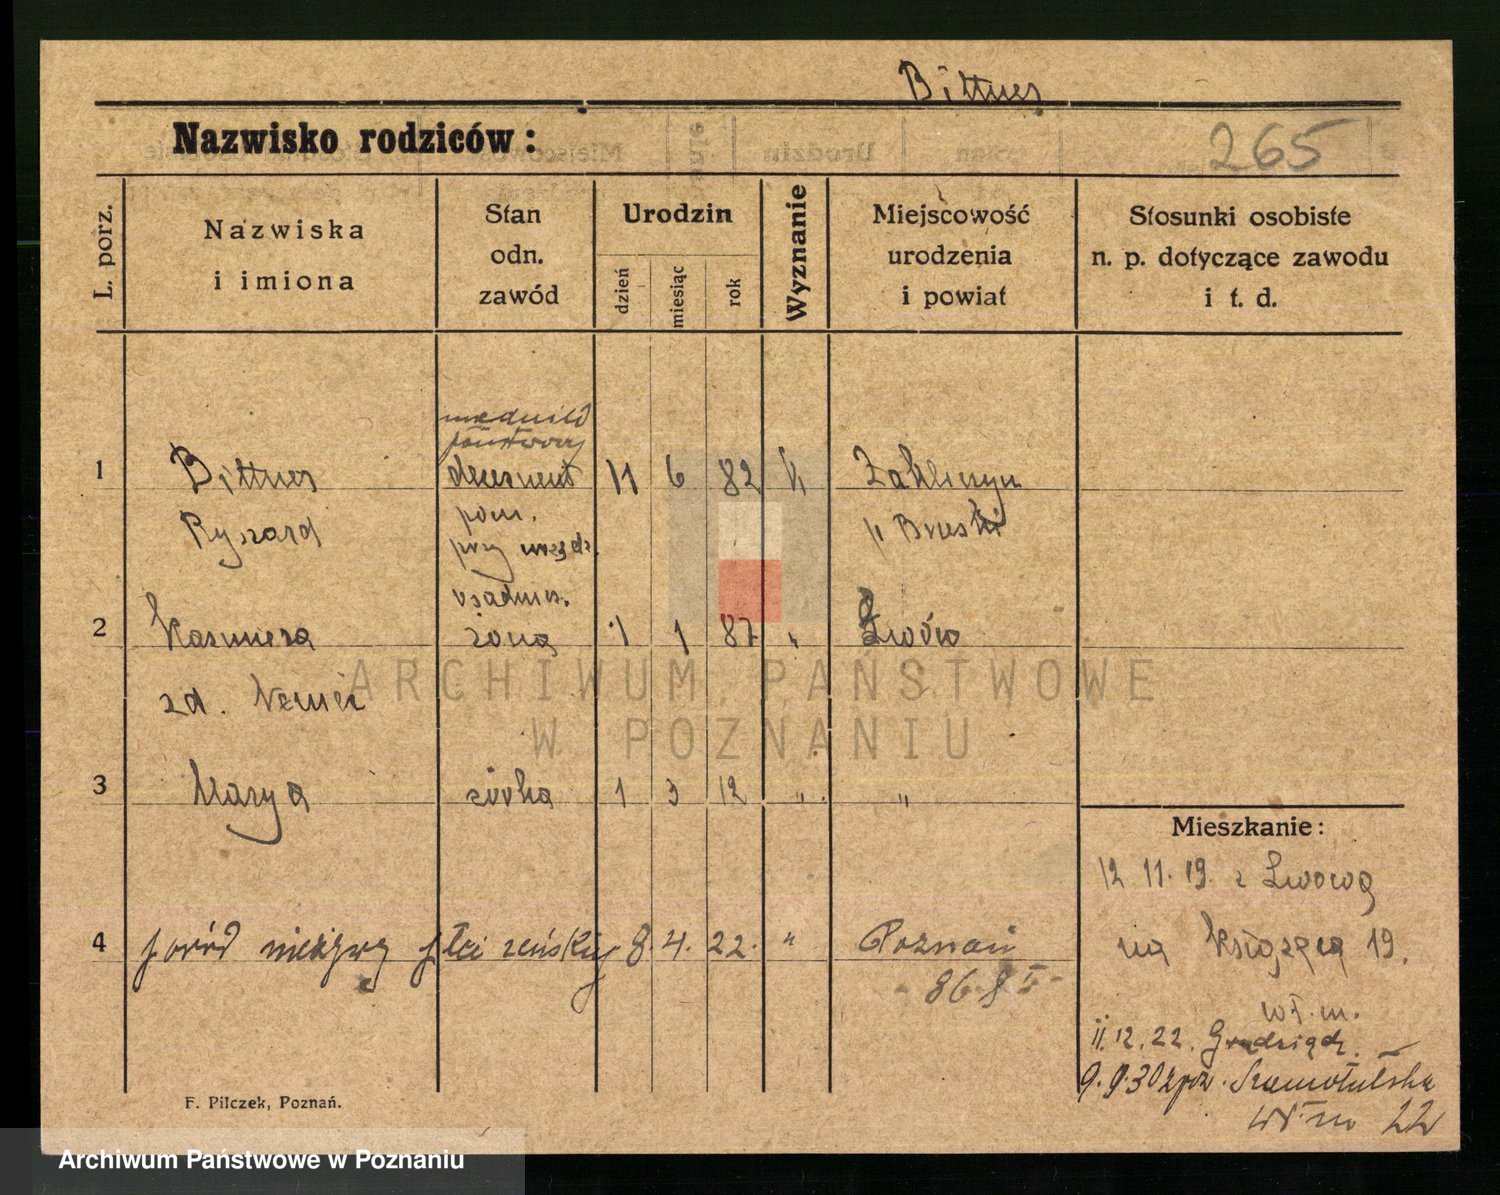 Bittner
Nazwisko rodziców:
265
L. porz.
Nazwiska
i imiona
Stan
odn.
zawód
Urodzin
dzień
miesiąc
rok
Wyznanie
Miejscowość
urodzenia
i powiat
Stosunki osobiste
n. p. dotyczące zawodu
i t. d.
państwowy
1 Bittner decernent 11 6 82 k Zakliczyn
Ryszard pom. p Brzeski
przy urzędz.
osadnicz.
2 Kazimiera żona 1 1 87 " Lwów
zd. Nemec
3 Marya córka 1 3 12 " "
Mieszkanie:
12 11. 19. z Lwowa
4 poród nieżywy płci żeńskiej 8. 4. 22. " Poznań
na Książęca 19.
86 8
wł. m.
11. 12. 22. Grudziądz.
9. 9. 30 Szamotulska
wł. m 22
F. Pilczek, Poznań.
ARCHIWUM PAŃSTWOWE
W POZNANIU
Archiwum Państwowe w Poznaniu